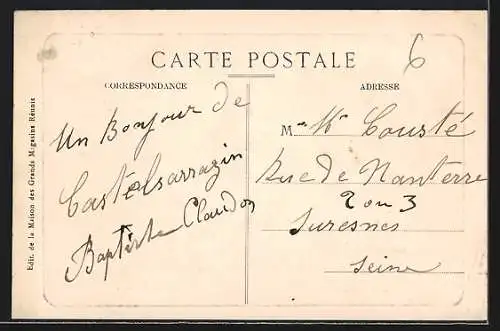 CARTE POSTALE
6
CORRESPONDANCE
ADRESSE
Un Bonjour de
Castelsarrazin
Baptiste Claudon
M Cousté
Rue de Nanterre
2 ou 3
Suresnes
Seine
Edit. de la Maison des Grands Magasins Réunis